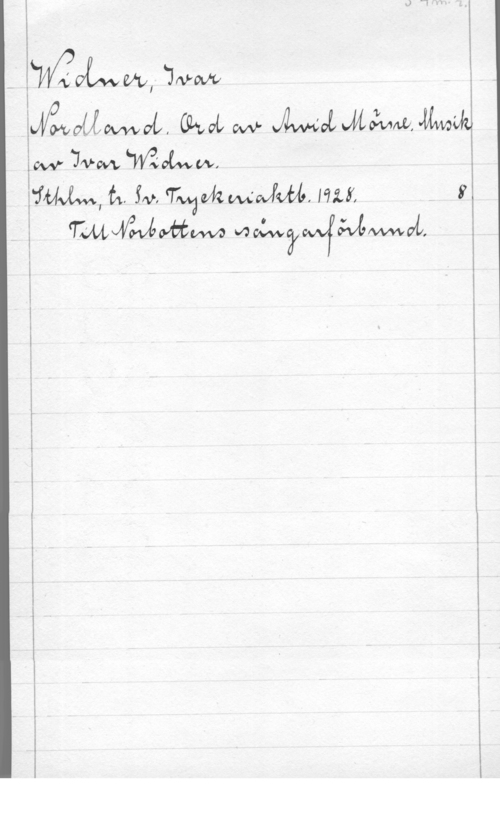 Widner, Ivar
Nordland. Ord av Arvid Mörne. Musik
av Ivar Widner.
Sthlm, tr. Sv. Tryckeriaktb. 1928. 8
Till Norbottens sångarförbund.